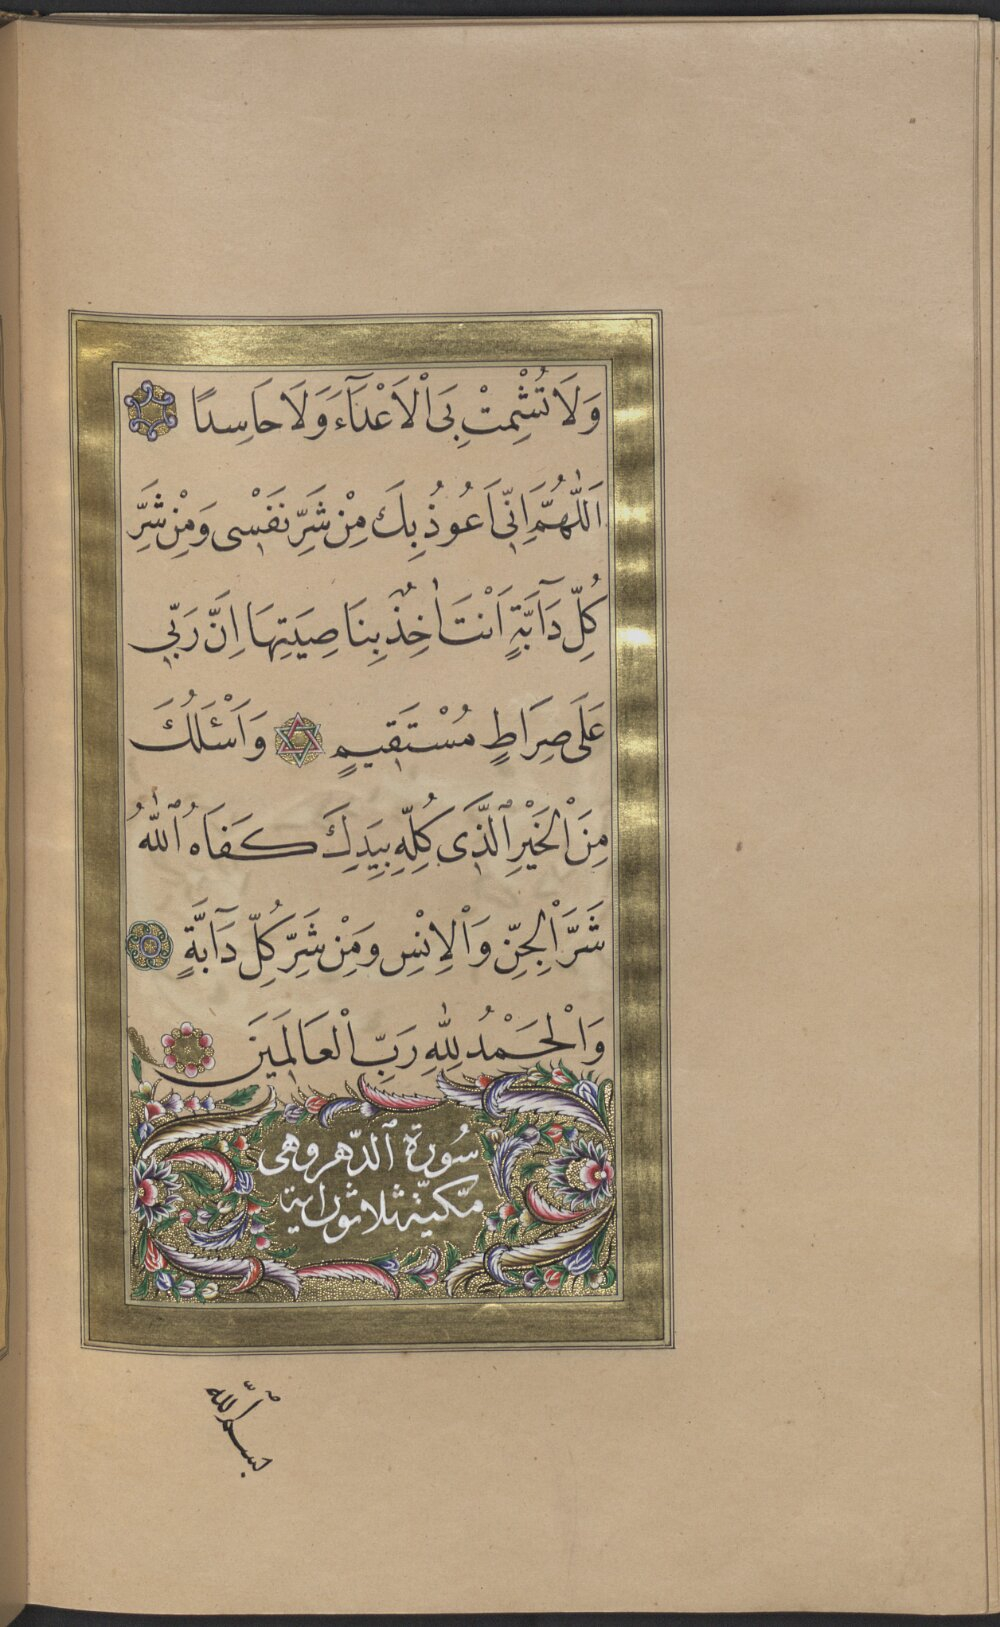 وَلَا تُشْمِتْ بِىَ الْاَعْدَآءَ وَلَا حَاسِدًا
اَللّٰهُمَّ اِنِّى اَعُوذُ بِكَ مِنْ شَرِّ نَفْسِى وَمِنْ شَرِّ
كُلِّ دَآبَّةٍ اَنْتَ اٰخِذٌ بِنَاصِيَتِهَا اِنَّ رَبِّى
عَلَى صِرَاطٍ مُسْتَقِيمٍ وَاَسْئَلُكَ
مِنَ الْخَيْرِ الَّذِى كُلِّهِ بِيَدِكَ كَفَاهُ اللّٰهُ
شَرَّ الْجِنِّ وَالْاِنْسِ وَمِنْ شَرِّ كُلِّ دَآبَّةٍ
وَالْحَمْدُ لِلّٰهِ رَبِّ الْعَالَمِينَ
سُورَةُ الدَّهرِ وهى
مكيّة ثلاثون اية
بسم الله